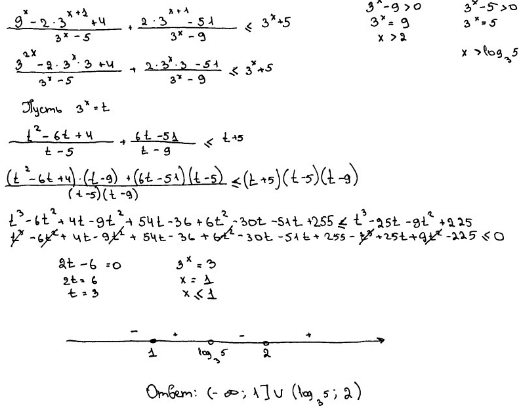 (9^x - 2·3^(x+1) + 4)/(3^x - 5) + (2·3^(x+1) - 51)/(3^x - 9) ≤ 3^x + 5
3^x - 9 > 0
3^x = 9
x > 2
3^x - 5 > 0
3^x = 5
x > log₃5
(3^(2x) - 2·3^x·3 + 4)/(3^x - 5) + (2·3^x·3 - 51)/(3^x - 9) ≤ 3^x + 5
Пусть 3^x = t
(t² - 6t + 4)/(t - 5) + (6t - 51)/(t - 9) ≤ t + 5
((t² - 6t + 4)·(t - 9) + (6t - 51)(t - 5))/((t - 5)(t - 9)) ≤ (t + 5)(t - 5)(t - 9)
t³ - 6t² + 4t - 9t² + 54t - 36 + 6t² - 30t - 51t + 255 ≤ t³ - 25t - 9t² + 225
t³ - 6t² + 4t - 9t² + 54t - 36 + 6t² - 30t - 51t + 255 - t³ + 25t + 9t² - 225 ≤ 0
2t - 6 = 0
2t = 6
t = 3
3^x = 3
x = 1
x ≤ 1
- + - +
1 log₃5 2
Ответ: (-∞; 1] ∪ (log₃5; 2)